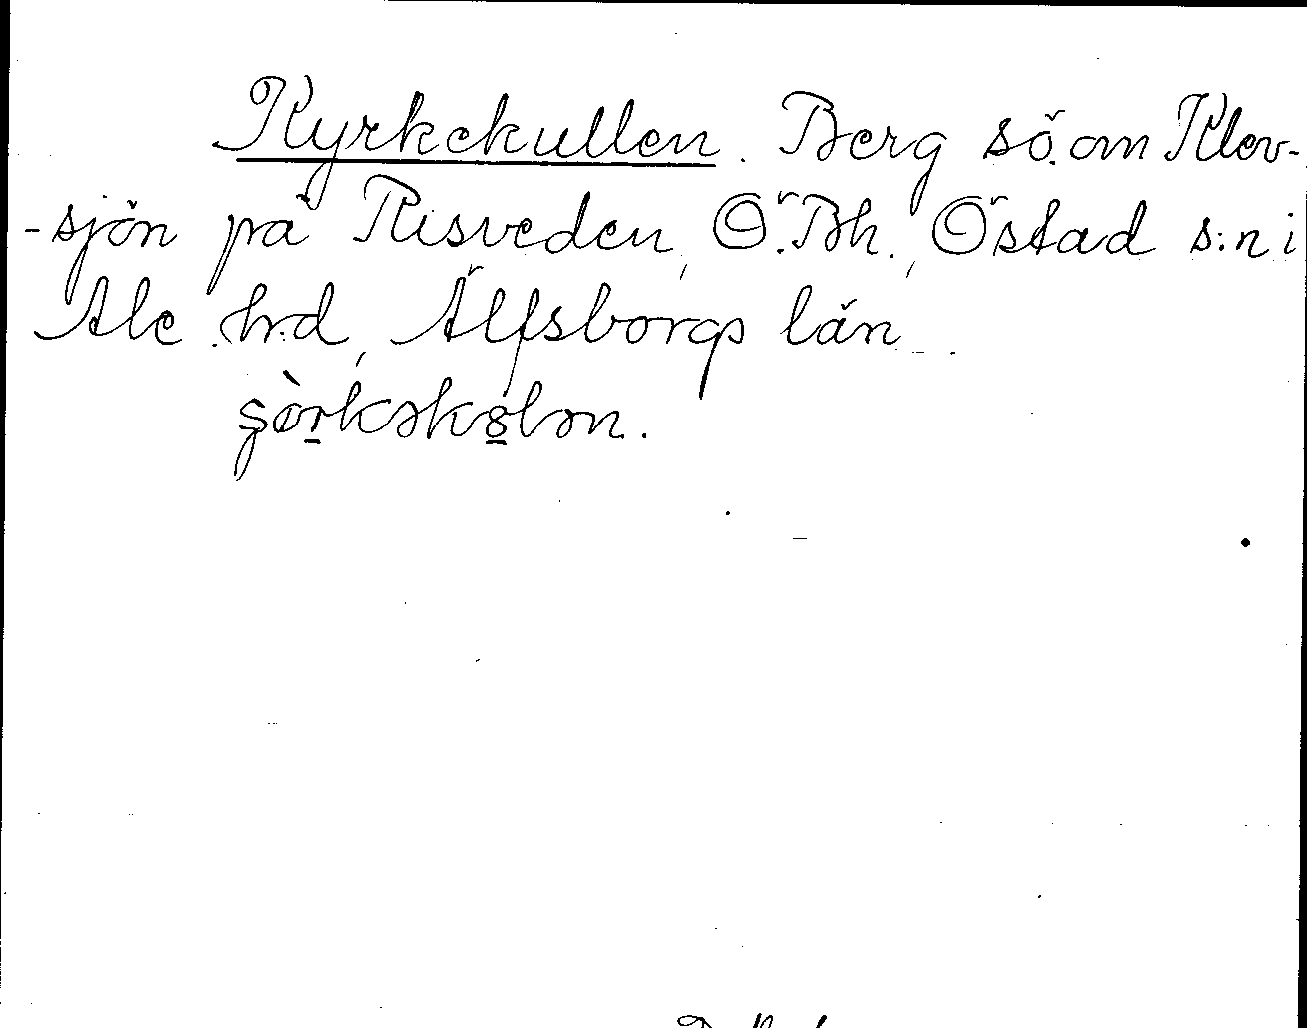 Kyrkekullen. Berg sö. om Klev-
-sjön på Risveden, Ö. Bh., Östad s:n i
Ale hd, Älfsborgs län.